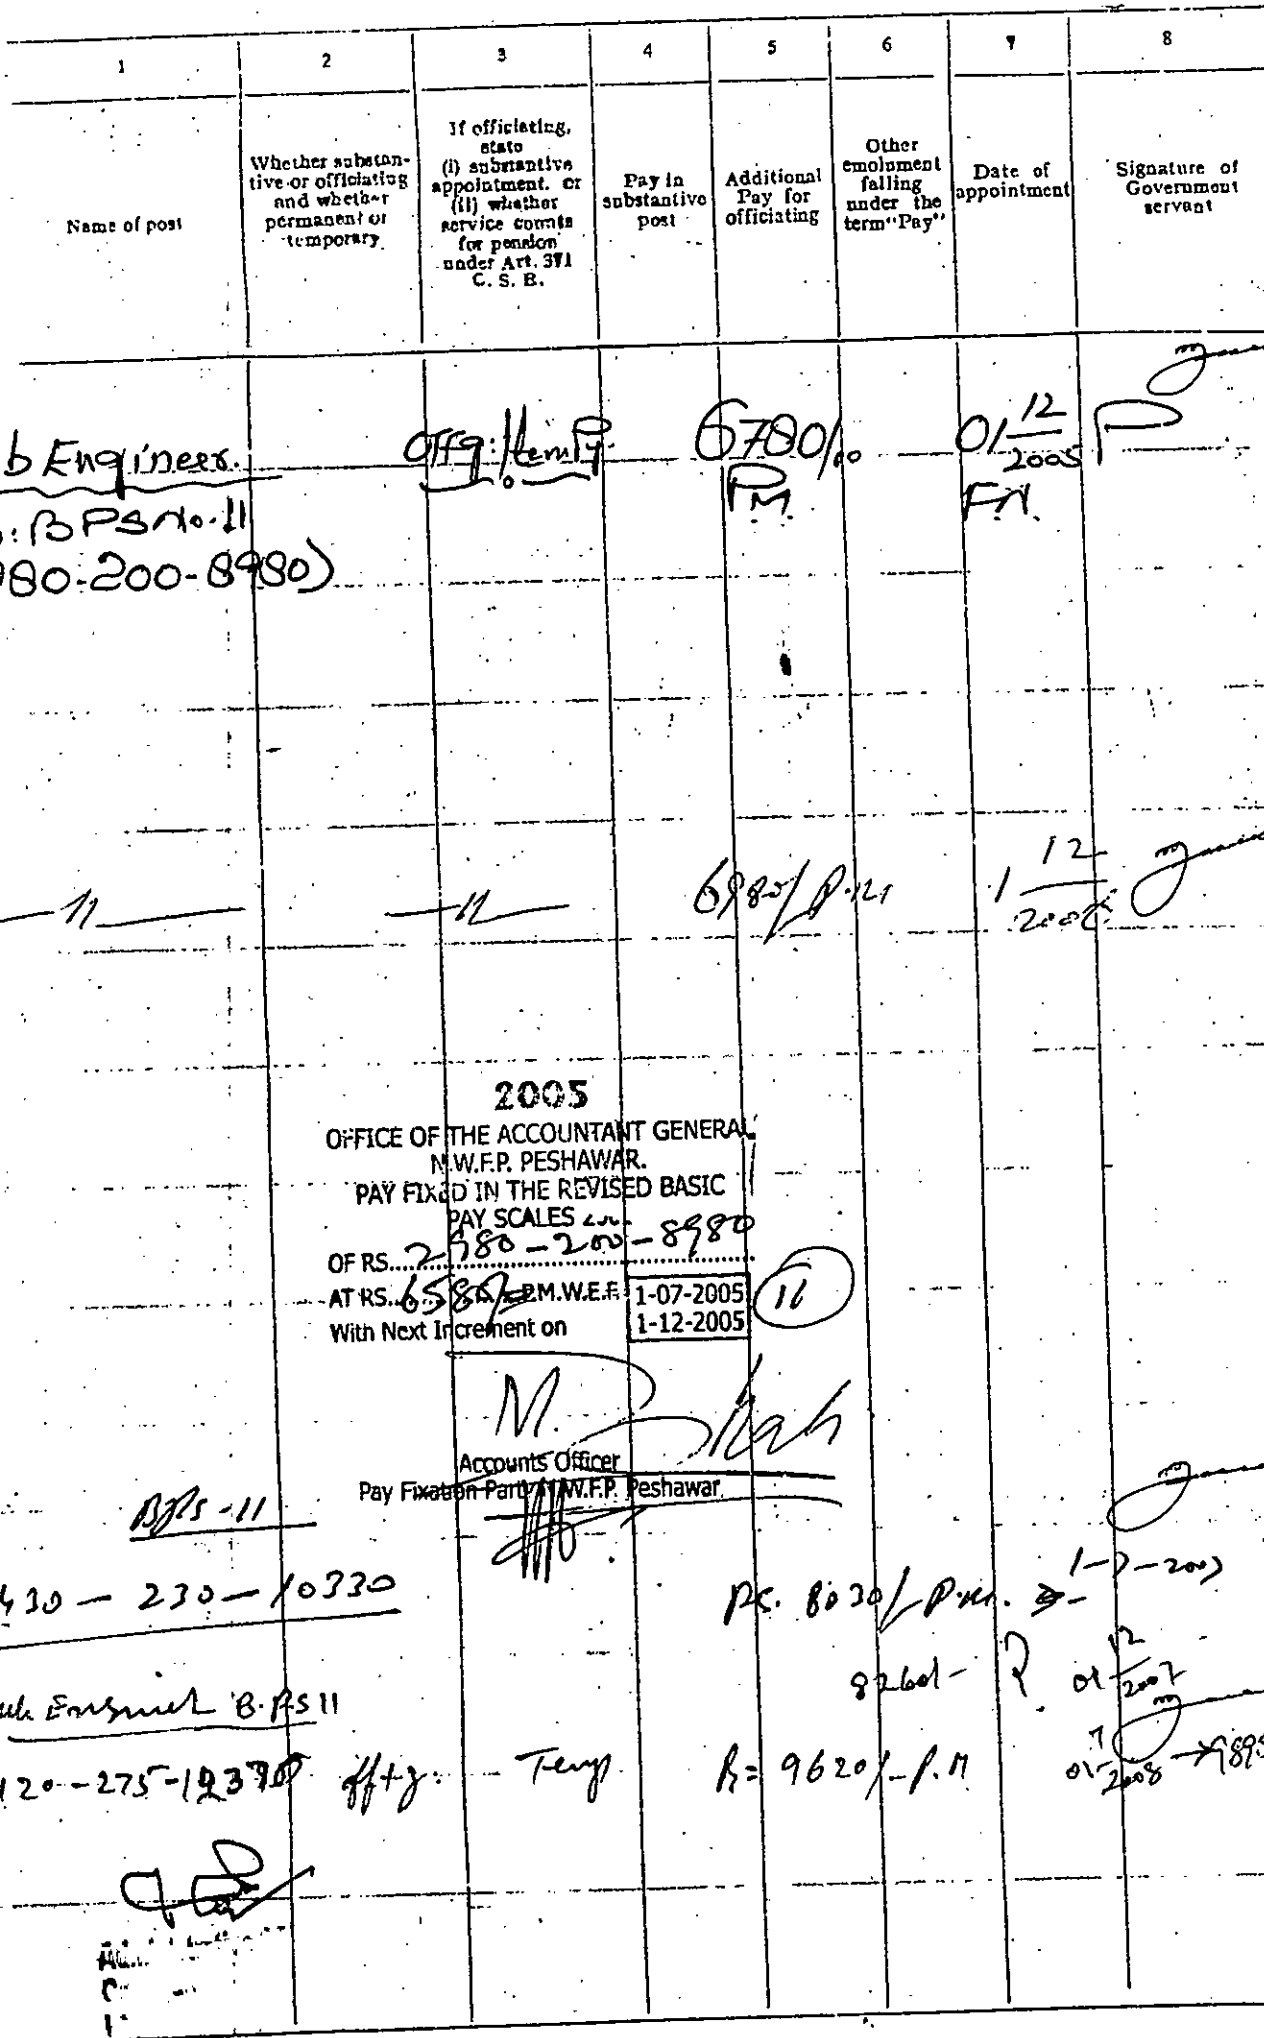 1 2 3 4 5 6 7 8
Name of post
Whether substan-
tive or officiating
and whether
permanent or
temporary
If officiating,
state
(i) substantive
appointment, or
(ii) whether
service counts
for pension
under Art. 371
C. S. R.
Pay in
substantive
post
Additional
Pay for
officiating
Other
emolument
falling
under the
term "Pay"
Date of
appointment
Signature of
Government
servant
b Engineer. Offg:/temp: 6780/- 01 12/2005
PM. F.N.
: BPS No. 11
980-200-8980)
—11— —11— 6980/ P.M 1 12
2005
OFFICE OF THE ACCOUNTANT GENERAL
N.W.F.P. PESHAWAR.
PAY FIXED IN THE REVISED BASIC
PAY SCALES
OF RS. 2980-200-8980
AT RS. 6580/- P.M.W.E.F. 1-07-2005
With Next Increment on 1-12-2005
11
M. Shah
Accounts Officer
Pay Fixation Party N.W.F.P. Peshawar
BPS-11
430 — 230 — 10330 Rs. 8030/- P.M.
8260/- 01 12/2007
B.PS 11
120-275-12370 offtg: Temp. Rs= 9620/- P.M 01 7/2008 → 989